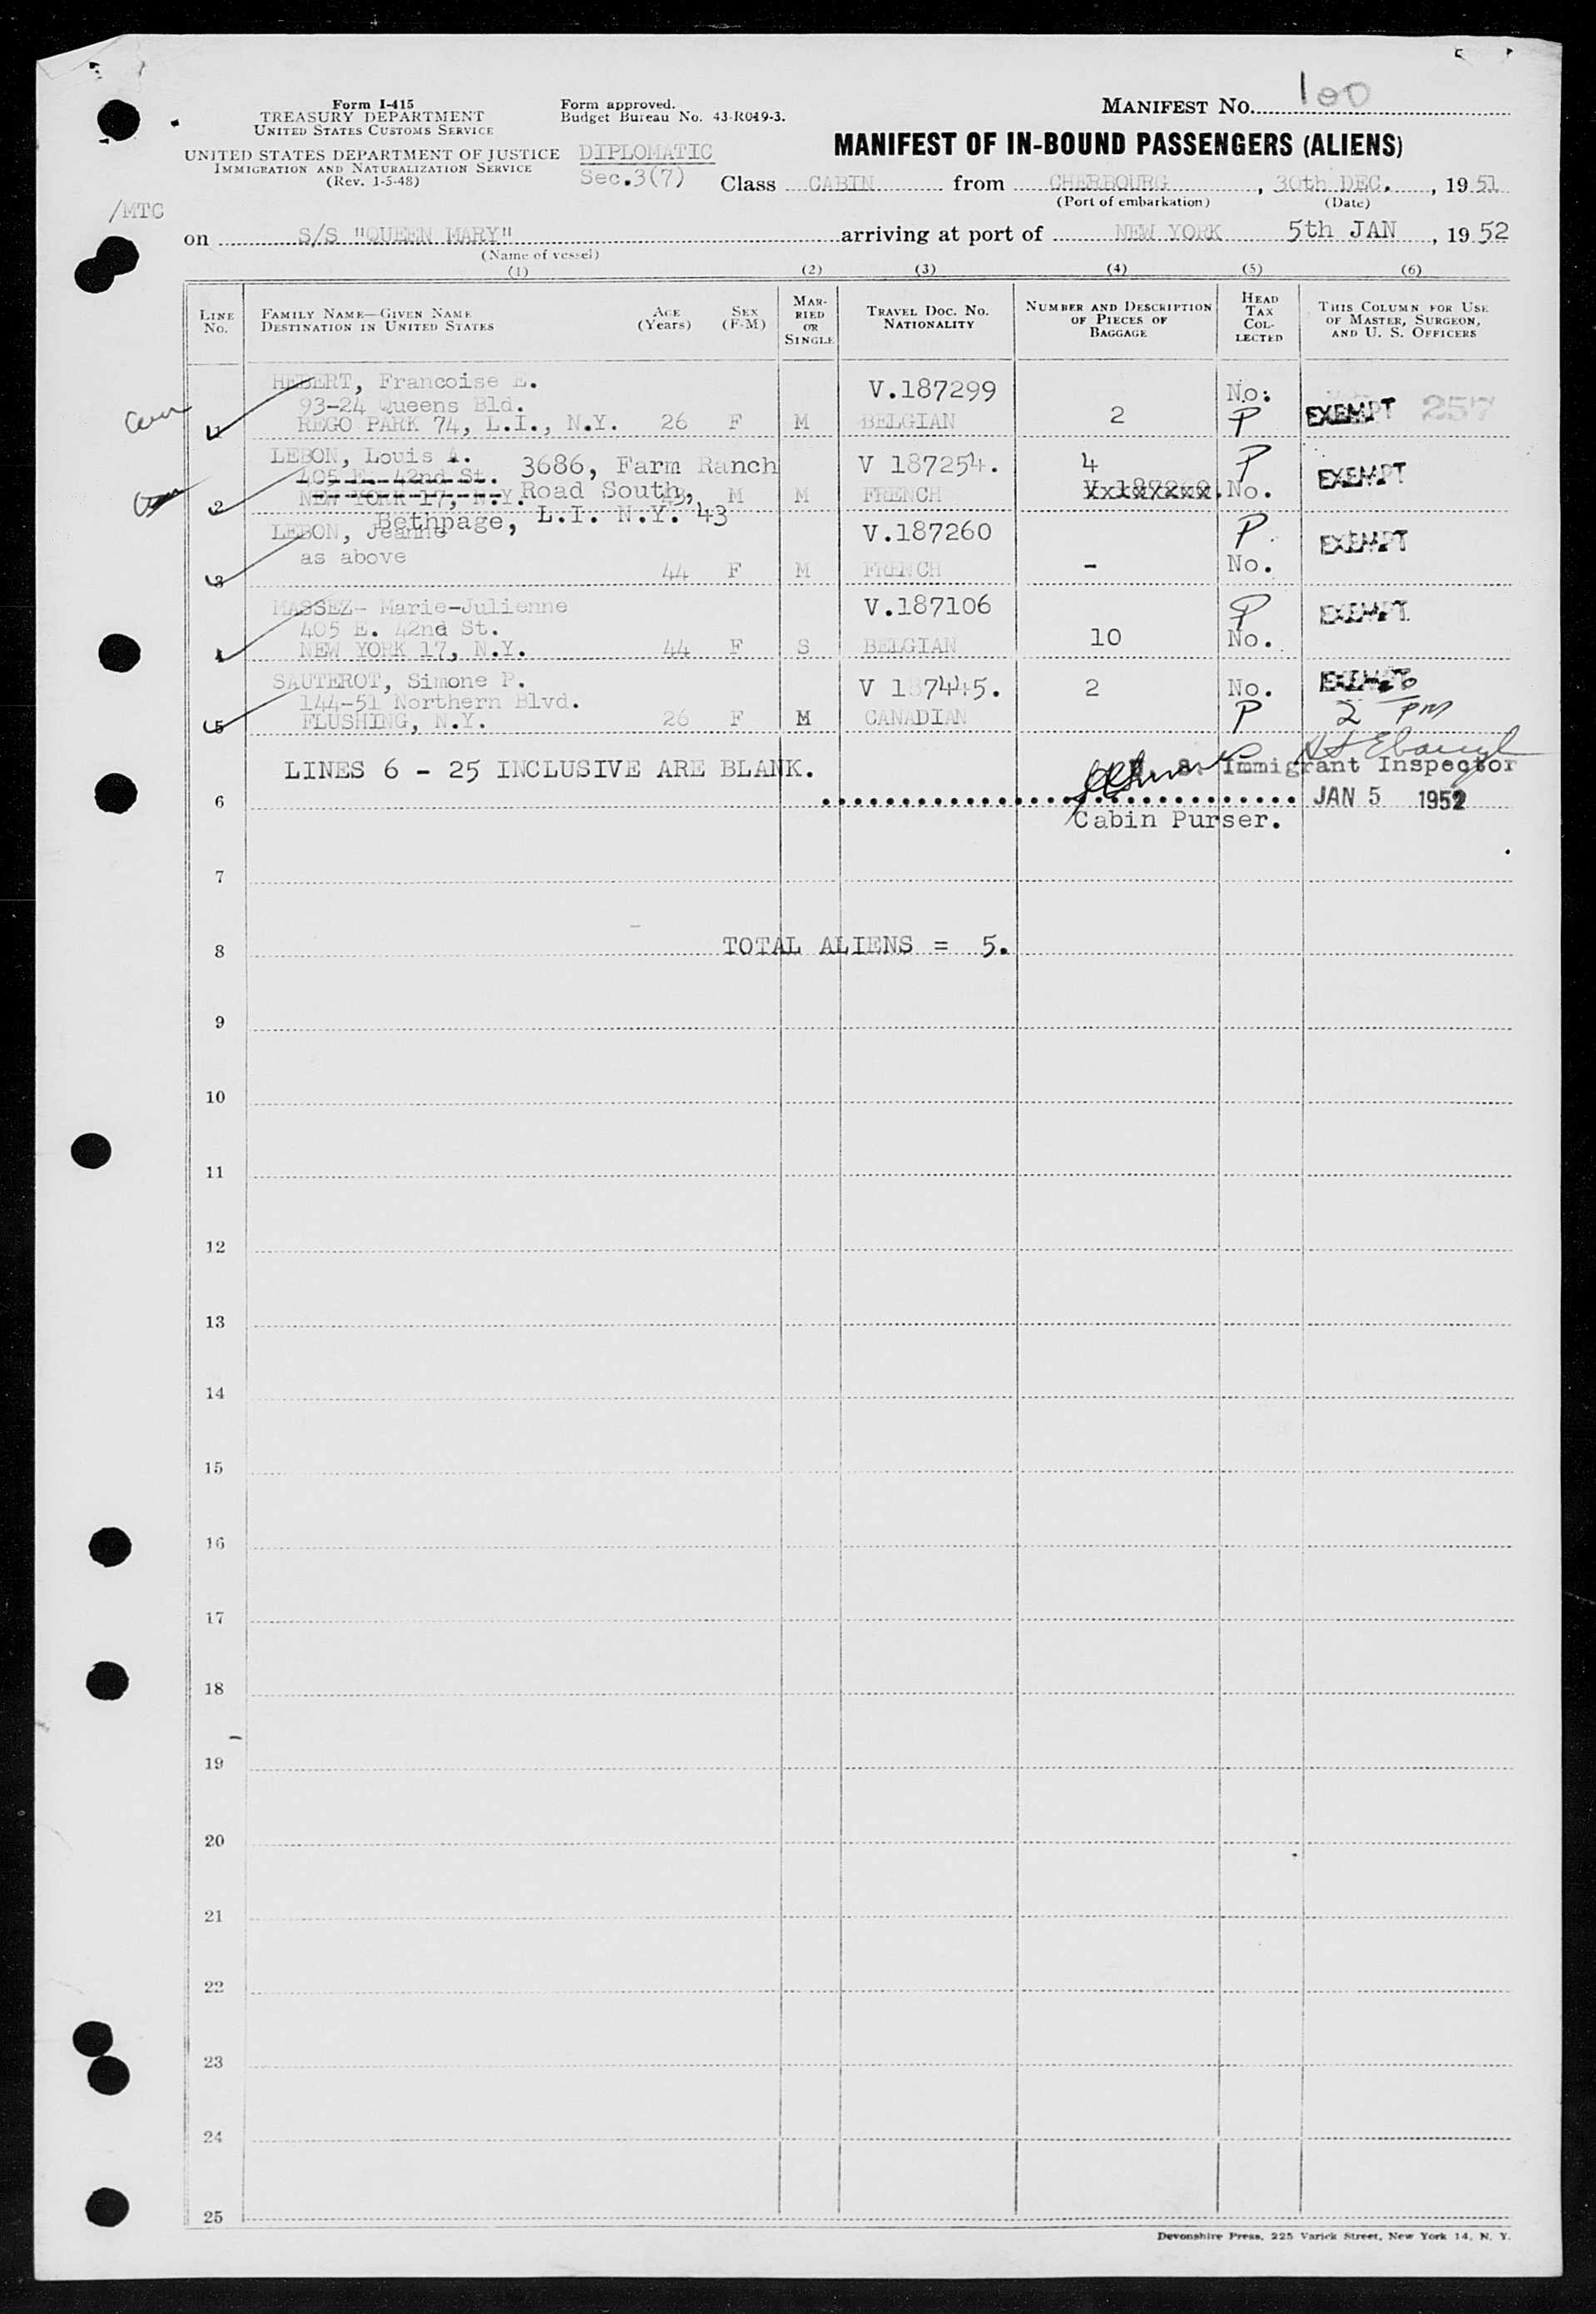 Form I-415
TREASURY DEPARTMENT
UNITED STATES CUSTOMS SERVICE
UNITED STATES DEPARTMENT OF JUSTICE
IMMIGRATION AND NATURALIZATION SERVICE
(Rev. 1-5-48)
Form approved.
Budget Bureau No. 43-R049-3.
DIPLOMATIC
Sec.3(7)
MANIFEST NO. 100
MANIFEST OF IN-BOUND PASSENGERS (ALIENS)
Class CABIN from CHERBOURG, 30th DEC., 19 51
(Port of embarkation) (Date)
/MTC
on S/S "QUEEN MARY" arriving at port of NEW YORK 5th JAN, 19 52
(Name of vessel)
(1) (2) (3) (4) (5) (6)
LINE No. FAMILY NAME—GIVEN NAME DESTINATION IN UNITED STATES AGE (Years) SEX (F-M) MARRIED OR SINGLE TRAVEL DOC. NO. NATIONALITY NUMBER AND DESCRIPTION OF PIECES OF BAGGAGE HEAD TAX COLLECTED THIS COLUMN FOR USE OF MASTER, SURGEON, AND U. S. OFFICERS
HEBERT, Francoise E. V.187299 No.
93-24 Queens Bld. 2 P EXEMPT 257
1 REGO PARK 74, L.I., N.Y. 26 F M BELGIAN
LEBON, Louis A. 3686, Farm Ranch V 187254. 4 P EXEMPT
405 E. 42nd St.
2 NEW YORK 17, N.Y. Road South, 43, M M FRENCH V 187260. No.
Bethpage, L.I. N.Y. 43
LEBON, Jeanne V.187260 P. EXEMPT
as above No.
3 44 F M FRENCH -
MASSEZ- Marie-Julienne V.187106 P EXEMPT
405 E. 42nd St. 10 No.
4 NEW YORK 17, N.Y. 44 F S BELGIAN
SAUTEROT, Simone P. V 187445. 2 No. EXEMPT
144-51 Northern Blvd.
5 FLUSHING, N.Y. 26 F M CANADIAN P 2 PM
LINES 6 - 25 INCLUSIVE ARE BLANK. U. S. Immigrant Inspector
6 JAN 5 1952
Cabin Purser.
7
8 TOTAL ALIENS = 5.
9
10
11
12
13
14
15
16
17
18
19
20
21
22
23
24
25
Devonshire Press, 225 Varick Street, New York 14, N. Y.